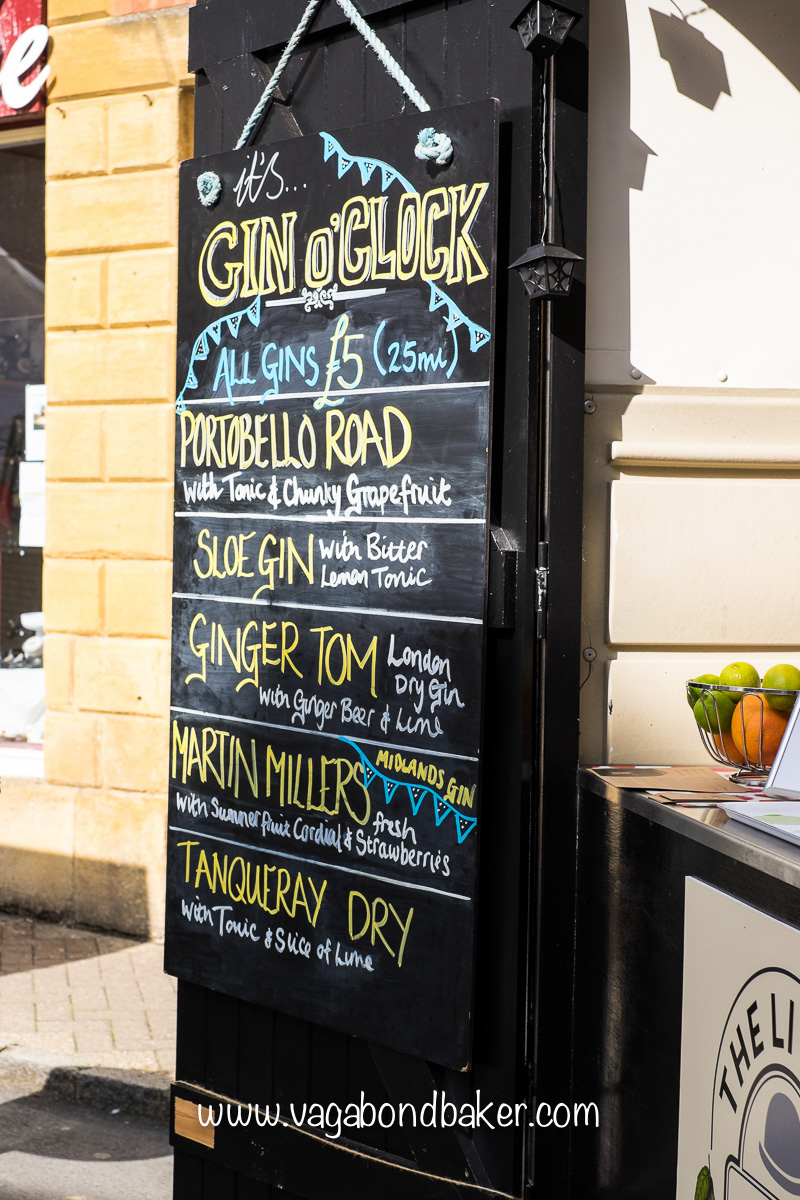 e
it's...
GIN O'CLOCK
ALL GINS £5 (25ml)
PORTOBELLO ROAD
with Tonic & Chunky Grapefruit
SLOE GIN with Bitter
Lemon Tonic
GINGER TOM London
Dry Gin
with Ginger Beer & Lime
MARTIN MILLERS MIDLANDS GIN
with Summerfruit Cordial & fresh
Strawberries
TANQUERAY DRY
with Tonic & Slice of Lime
THE LI
www.vagabondbaker.com